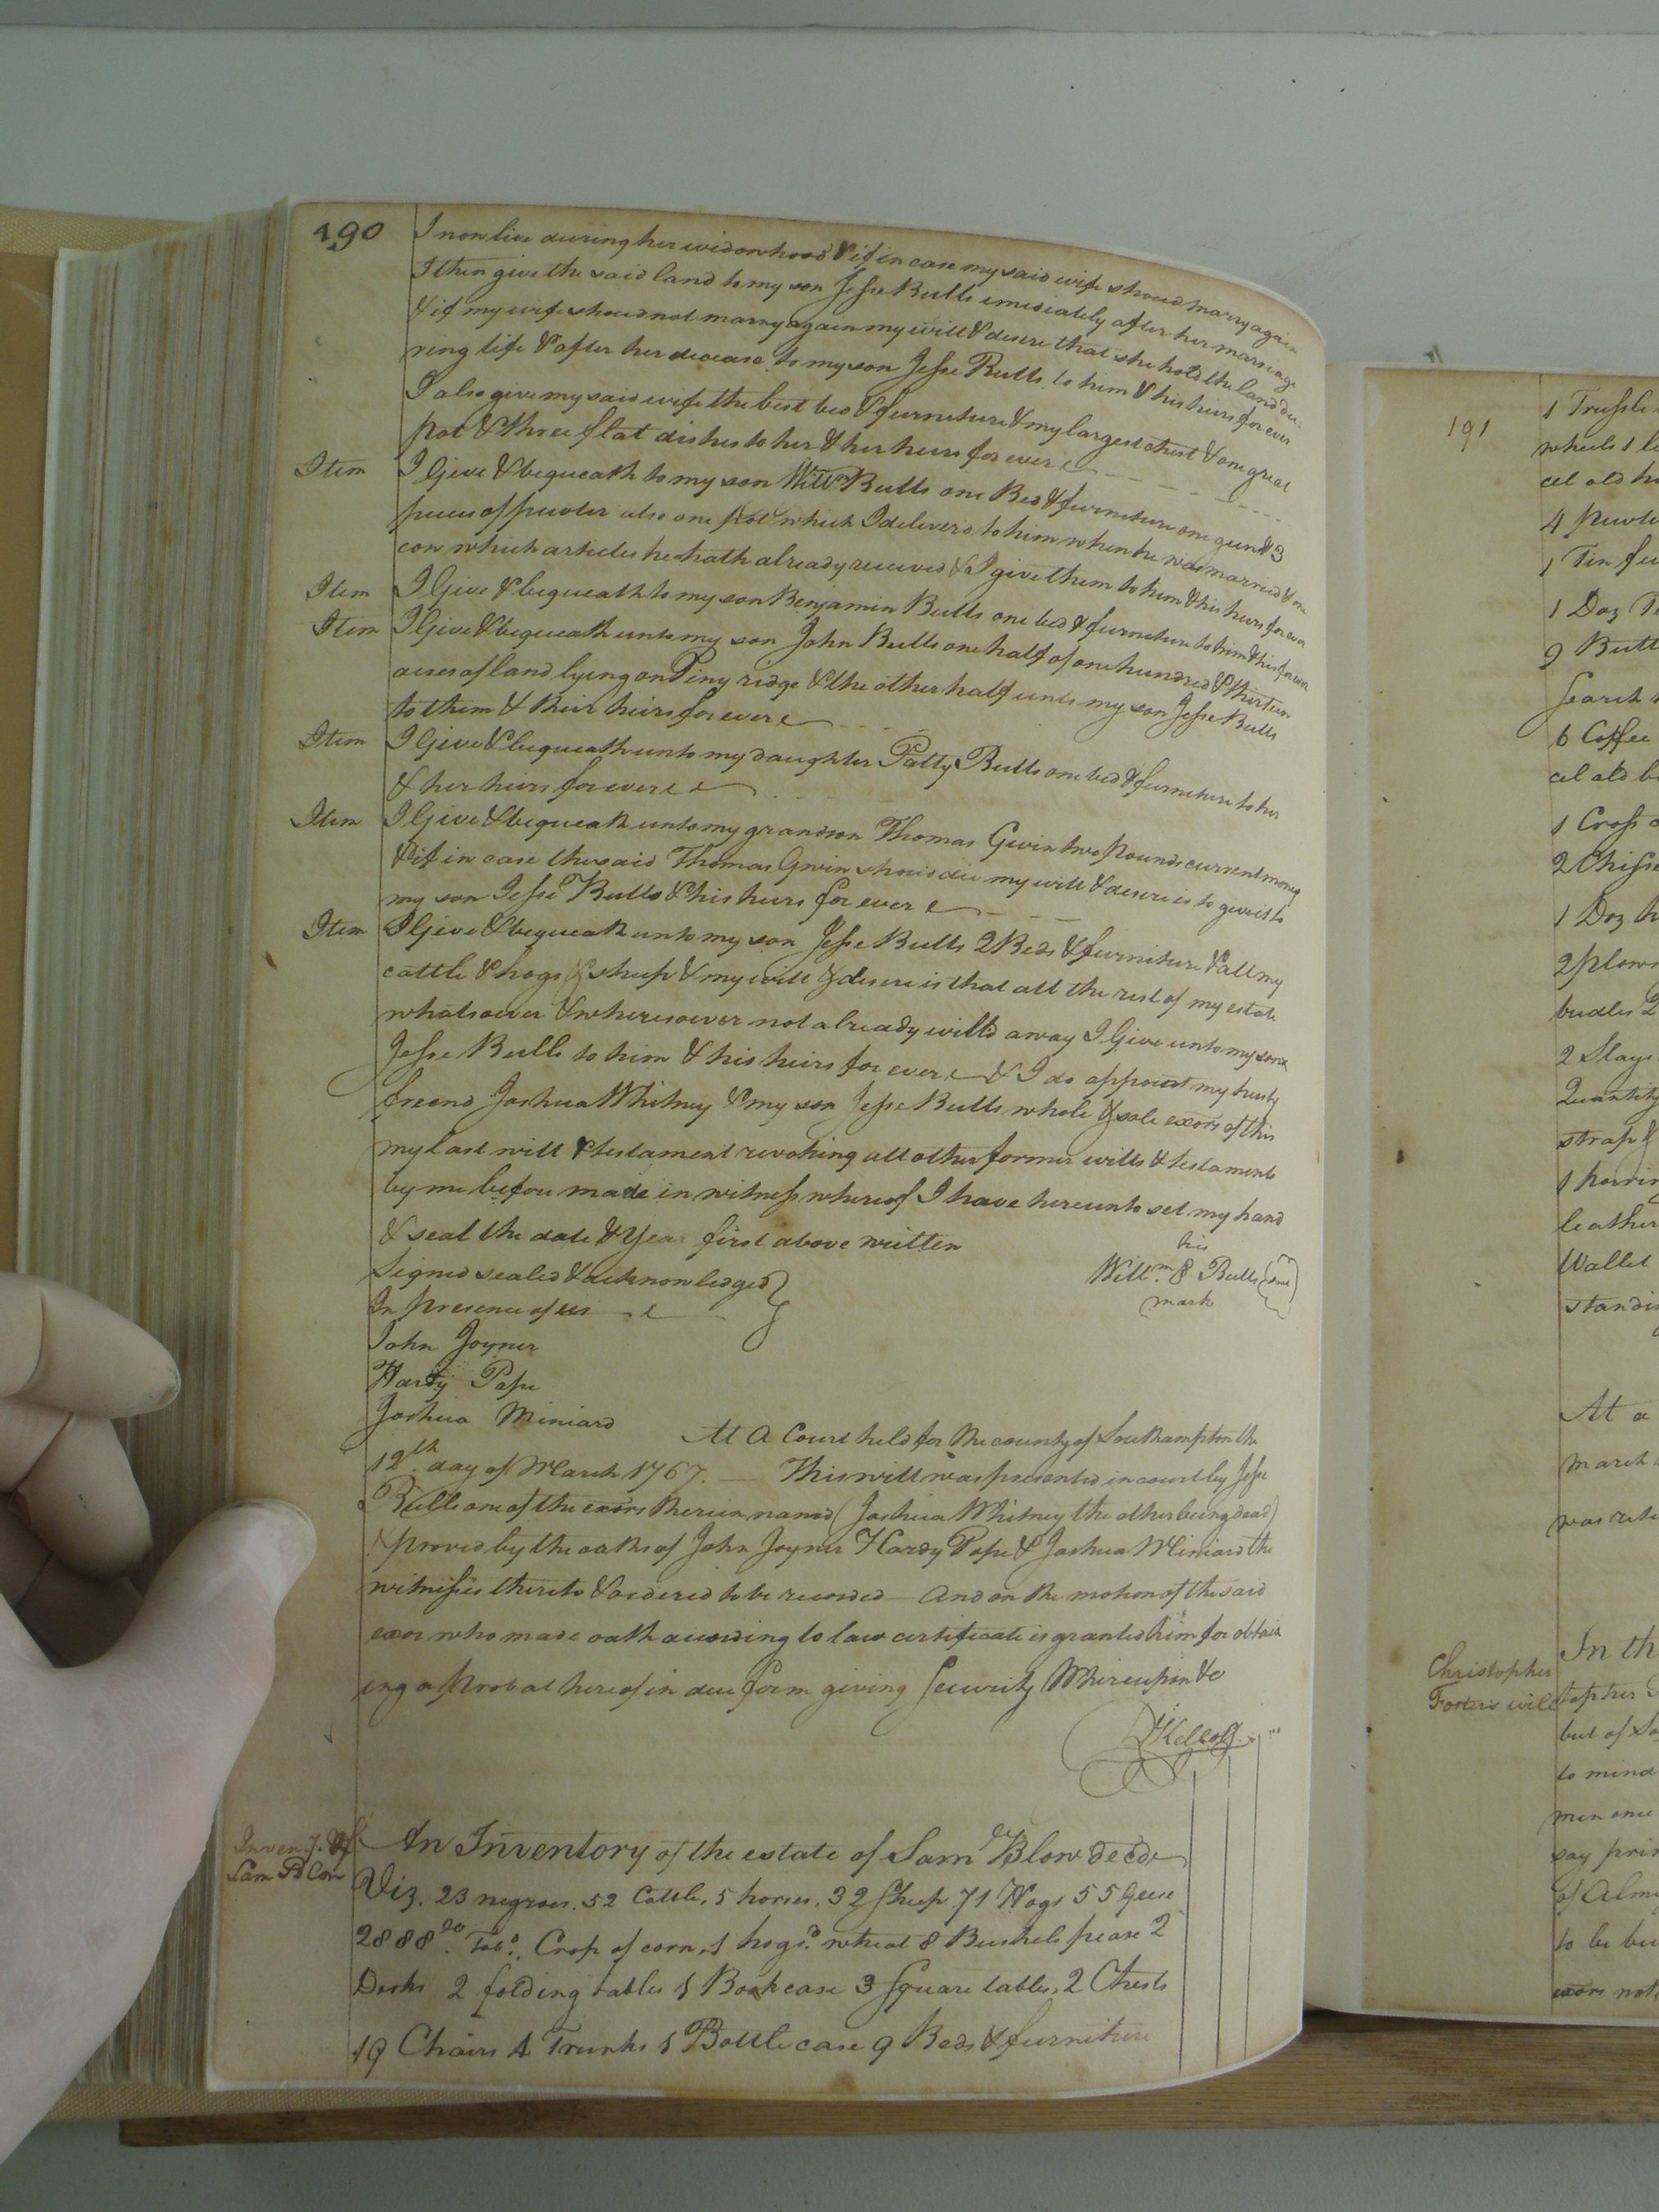 190
I now live during her widowhood & if in case my said wife shoud marry again
I then give the said land to my son Jesse Bulls imediately after her marriage
& if my wife shoud not marry again my will & desire that she hold the land du:
ring life & after her decease to my son Jesse Bulls to him & his heirs for ever
I also give my said wife the best bed & furniture & my largest chest & one great
pot & three flat dishes to her & her heirs for ever
Item I Give & bequeath to my son Willm Bulls one Bed & furniture one gun & 3
pieces of pewter also one pot which I deliver'd to him when he was married & one
cow which articles he hath already received & I give them to him & his heirs for ever
Item I Give & bequeath to my son Benjamin Bulls one bed & furniture to him & his for ever
Item I Give & bequeath unto my son John Bulls one half of one hundred & thirteen
acres of land lying on Piny ridge & the other half unto my son Jesse Bulls
to them & their heirs for ever
Item I Give & bequeath unto my daughter Patty Bulls one bed & furniture to her
& her heirs for ever
Item I Give & bequeath unto my grandson Thomas Gwin two Pounds current money
& if in case the said Thomas Gwin should die my will & desire is to give it to
my son Jesse Bulls & his heirs for ever
Item I Give & bequeath unto my son Jesse Bulls 2 Beds & furniture & all my
cattle & hogs & sheep & my will & desire is that all the rest of my estate
whatsoever & wheresoever not already will'd away I Give unto my son
Jesse Bulls to him & his heirs for ever & I do appoint my trusty
freind Joshua Whitney & my son Jesse Bulls whole & sole exors of this
my last will & testament revoking all other former wills & testaments
by me before made in witness whereof I have hereunto set my hand
& seal the date & Year first above written
his
Signed sealed & acknowledged Willm. 8 Bulls seal
In presence of us mark
John Joyner
Hardy Pope
Joshua Miniard
At a Court held for the county of Southampton the
12th. day of March 1767. — This will was presented in court by Jesse
Bulls one of the exors therein named (Joshua Whitney the other being dead)
proved by the oaths of John Joyner Hardy Pope & Joshua Miniard the
witnesses thereto & ordered to be recorded — And on the motion of the said
exor who made oath according to law certificate is granted him for obtain
ing a probat hereof in due form giving Security Whereupon &c
Inveny. of An Inventory of the estate of Saml Blow decd
Sam Blow Viz. 23 negroes. 52 Cattle, 5 horses, 32 Sheep 71 Hogs 55 Geese
2888 Tobo. Crop of corn, 1 hogsd. wheat 8 Bushels pease 2
Desks 2 folding tables 1 Bookcase 3 Square tables, 2 Chests
19 Chairs 4 Trunks 1 Bottlecase 9 Beds & furniture
191
1 Tressle
wheels 1
cel old
4 pewte
1 Tin fu
1 Doz
9 Butt
Search
6 Coffee
cel old b
1 Cross
2 Chisse
1 Doz
2 plows
2 Slays
Quantity
strap &
leather
Wallet
standi
At a
march
was retu
In th
Christopher
Foster's will topher
but of So
to mind
men once
say prin
of Almi
to be bu
exors not